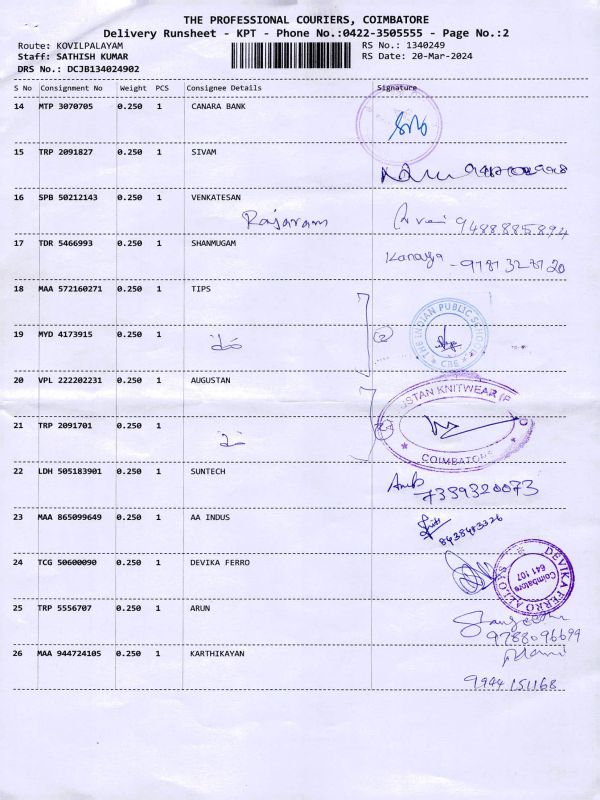 THE PROFESSIONAL COURIERS, COIMBATORE
Delivery Runsheet - KPT - Phone No.:0422-3505555 - Page No.:2
Route: KOVILPALAYAM
RS No.: 1340249
Staff: SATHISH KUMAR
RS Date: 20-Mar-2024
DRS No.: DCJB134024902
S No Consignment No Weight PCS Consignee Details Signature
14 MTP 3070705 0.250 1 CANARA BANK
15 TRP 2091827 0.250 1 SIVAM
16 SPB 50212143 0.250 1 VENKATESAN
Rajaram 9488885894
17 TDR 5466993 0.250 1 SHANMUGAM
18 MAA 572160271 0.250 1 TIPS
THE INDIAN PUBLIC SCHOOL
CBE
19 MYD 4173915 0.250 1
20 VPL 222202231 0.250 1 AUGUSTAN
KNITWEAR
21 TRP 2091701 0.250 1
COIMBATORE
22 LDH 505183901 0.250 1 SUNTECH
7339320073
23 MAA 865099649 0.250 1 AA INDUS
24 TCG 50600090 0.250 1 DEVIKA FERRO
DEVIKA FERRO ALLOYS
Coimbatore
641 107
25 TRP 5556707 0.250 1 ARUN
9788096699
26 MAA 944724105 0.250 1 KARTHIKAYAN
9944 151168